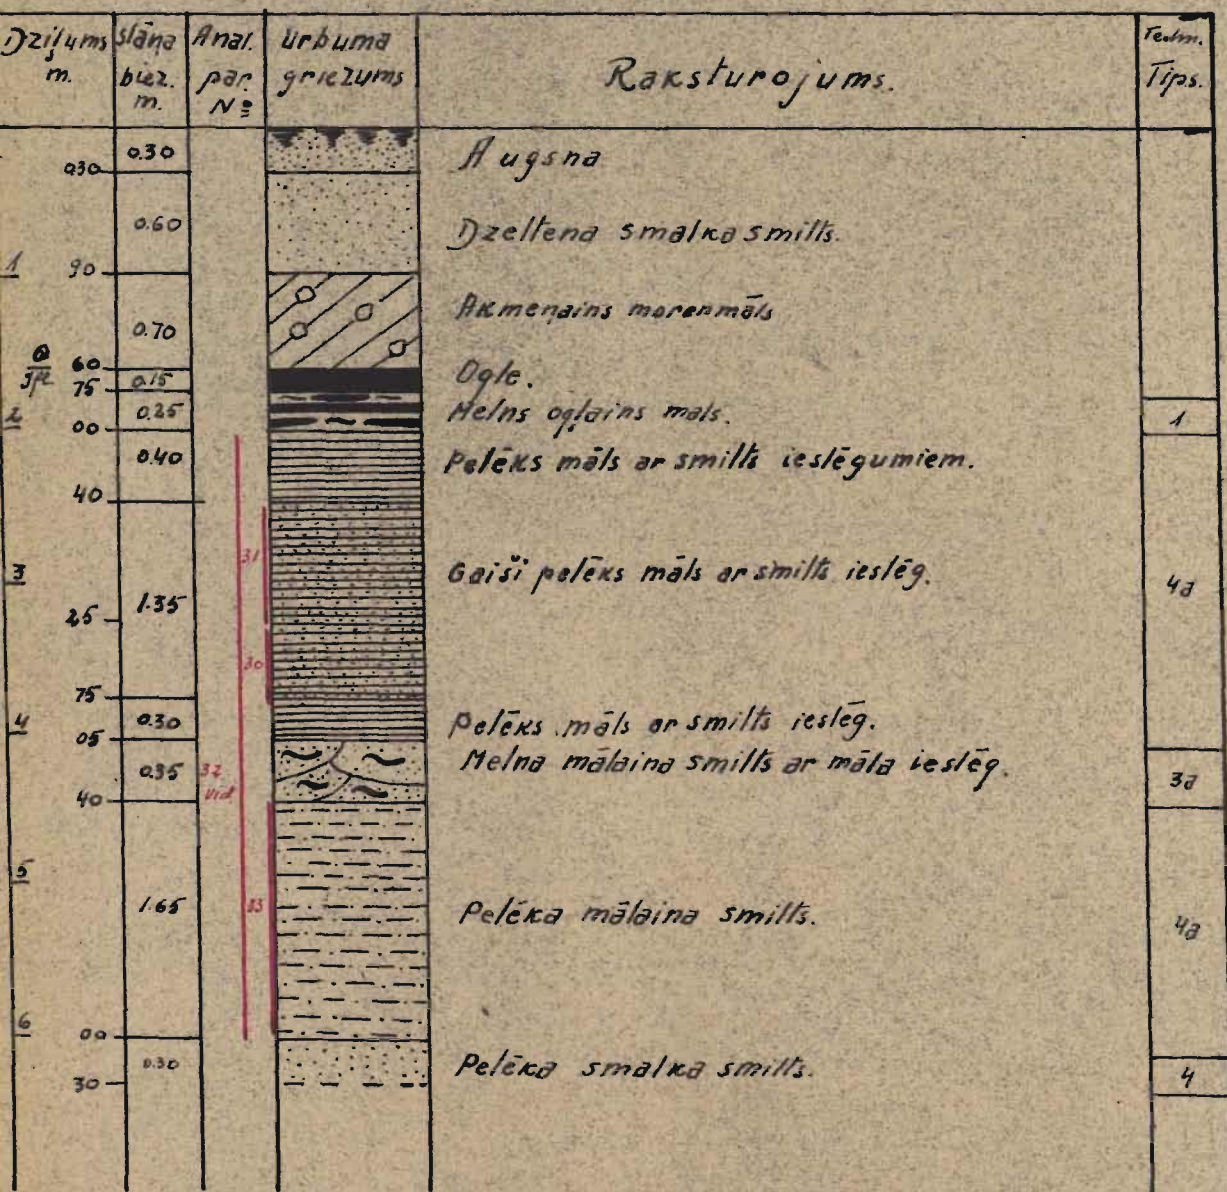 Dziļums m.
slāņa biez. m.
Anal. par. №
urbuma griezums
Raksturojums.
Tips.
0.30
0.30
Augsna
0.60
Dzeltena smalka smilts.
1
90
0.70
Akmeņains morenmāls
Q
60
0.15
Ogle.
75
0.25
Melns ogļains māls.
1
2
00
0.40
Pelēks māls ar smilts ieslēgumiem.
40
31
3
1.35
Gaiši pelēks māls ar smilts ieslēg.
4a
25
30
75
0.30
Pelēks māls ar smilts ieslēg.
4
05
0.35
32 vid
Melna mālaina smilts ar māla ieslēg.
3a
40
5
1.65
33
Pelēka mālaina smilts.
4a
6
00
0.30
Pelēka smalka smilts.
4
30